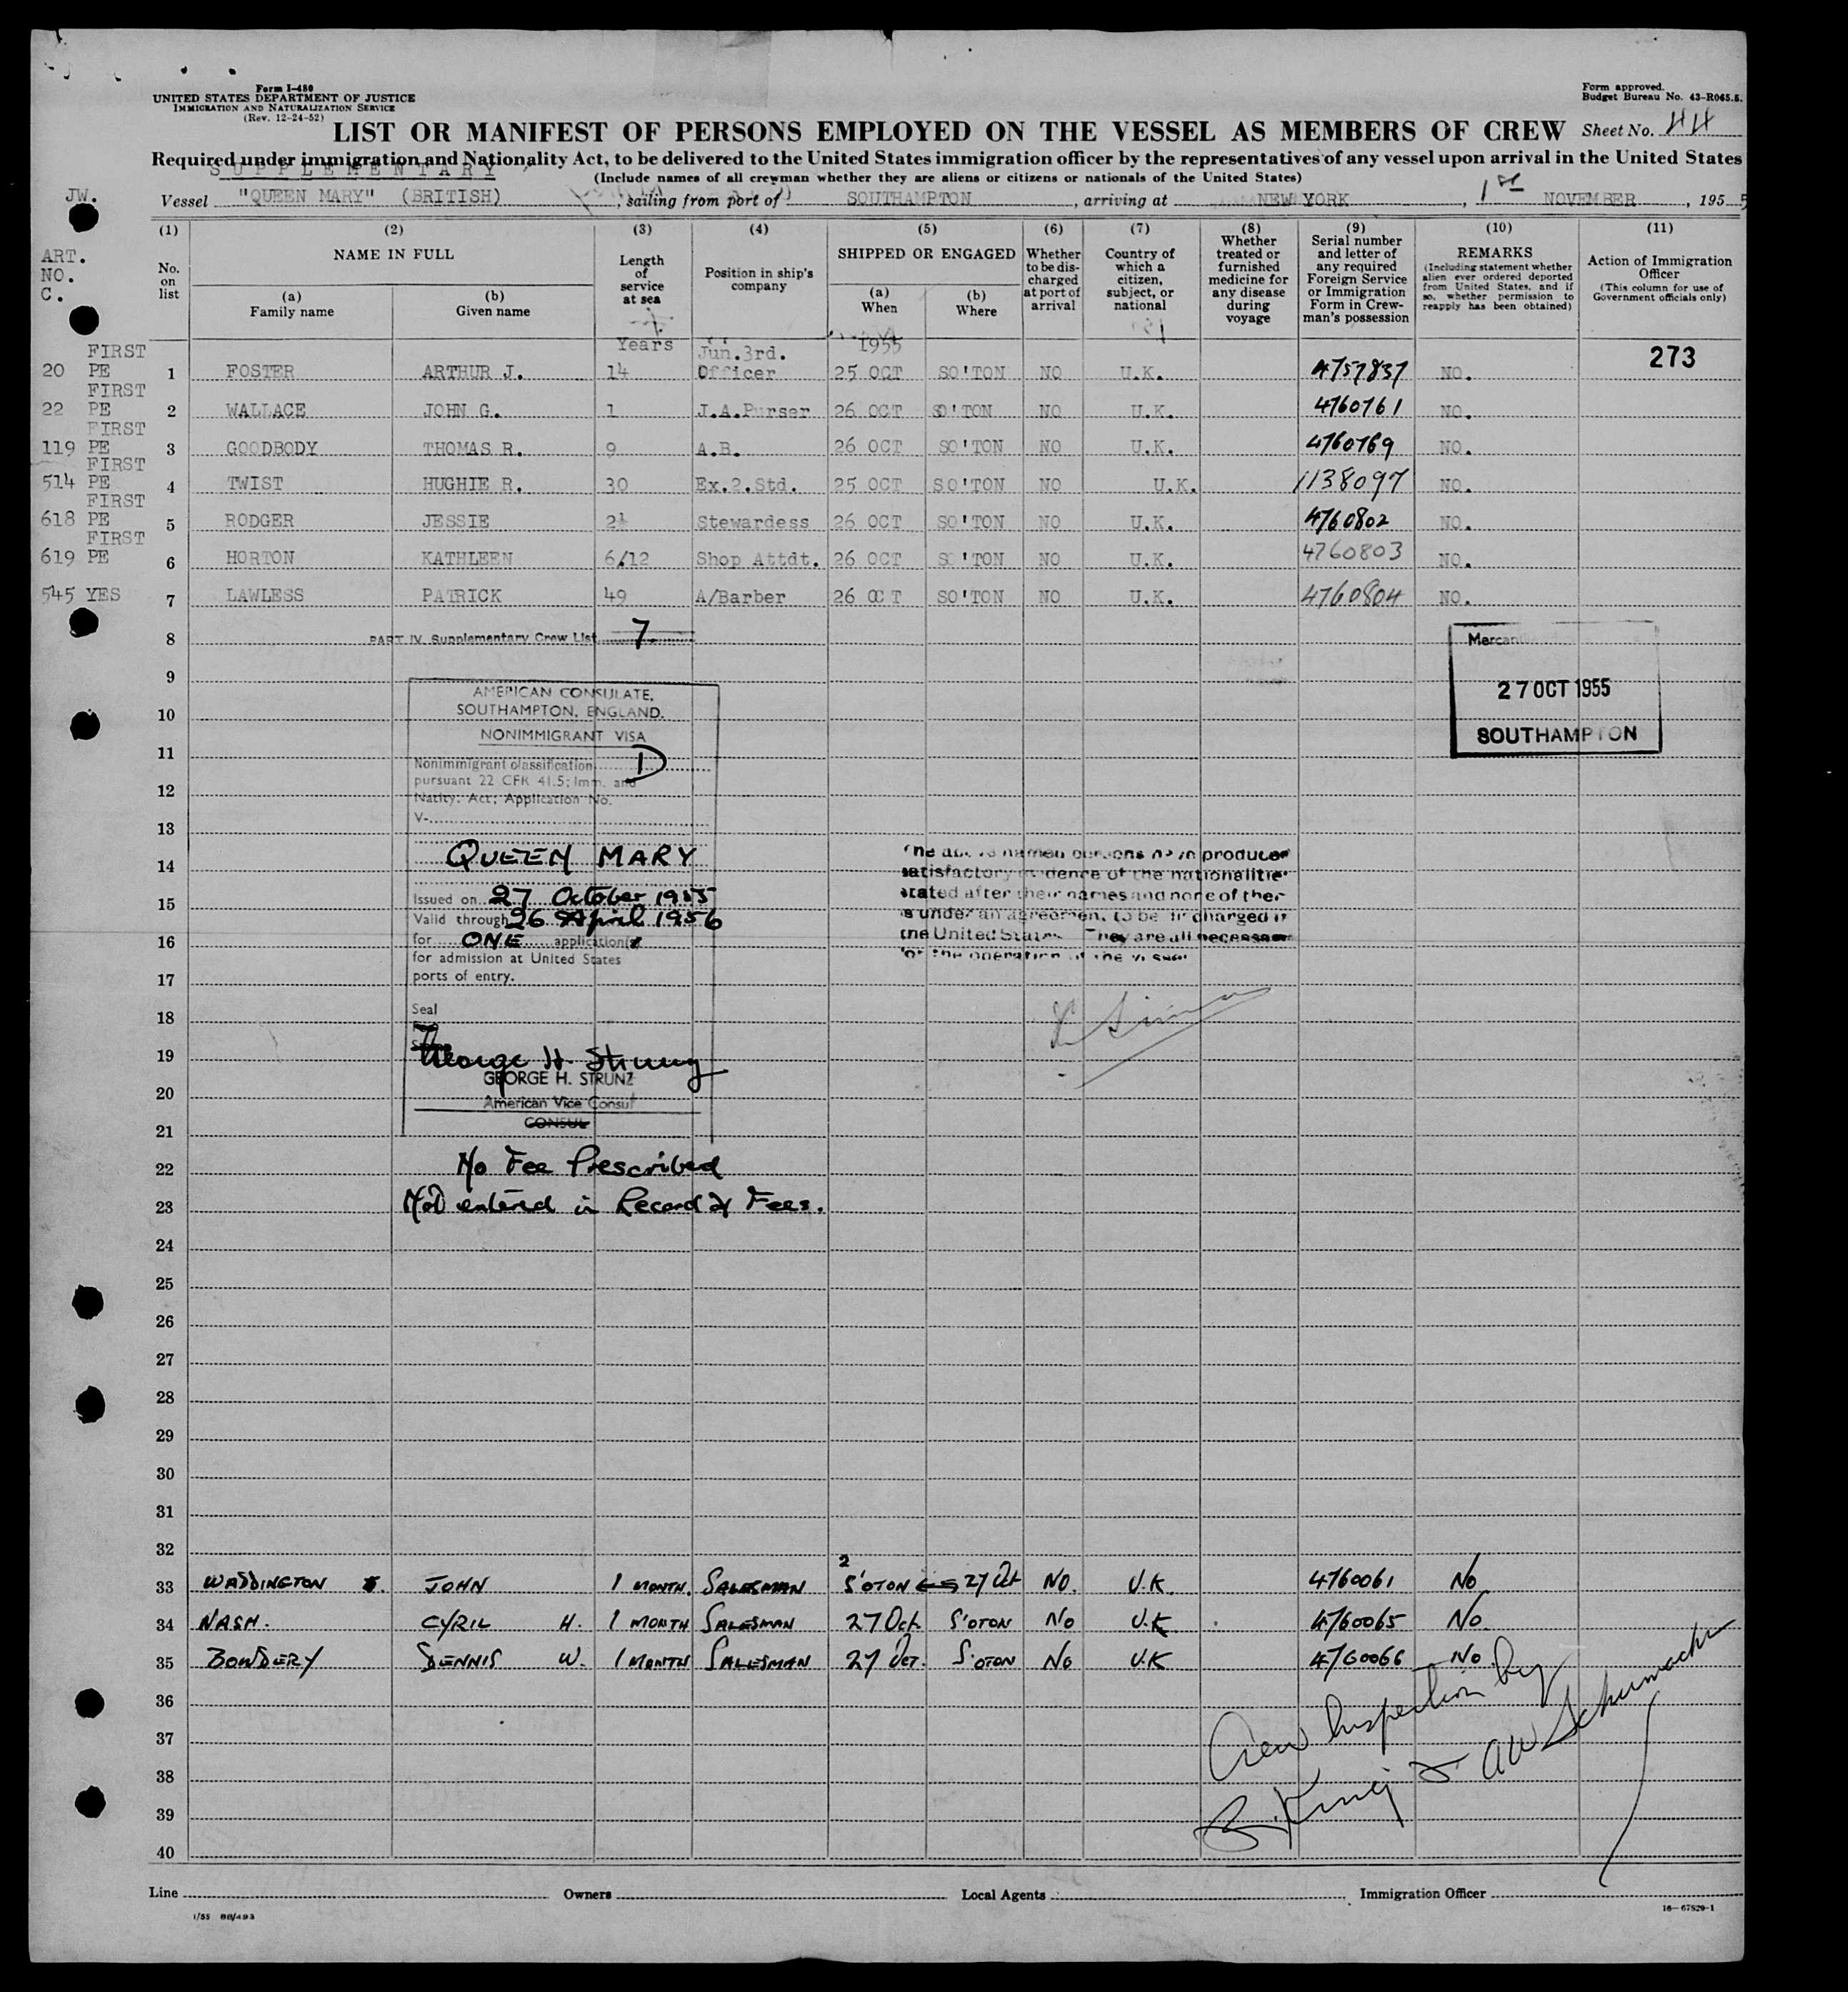 Form I-480
UNITED STATES DEPARTMENT OF JUSTICE
IMMIGRATION AND NATURALIZATION SERVICE
(Rev. 12-24-52)
Form approved.
Budget Bureau No. 43-R065.5.
LIST OR MANIFEST OF PERSONS EMPLOYED ON THE VESSEL AS MEMBERS OF CREW Sheet No. 44
Required under immigration and Nationality Act, to be delivered to the United States immigration officer by the representatives of any vessel upon arrival in the United States
SUPPLEMENTARY
(Include names of all crewman whether they are aliens or citizens or nationals of the United States)
JW.
Vessel "QUEEN MARY" (BRITISH), sailing from port of SOUTHAMPTON, arriving at NEW YORK, 1st NOVEMBER, 1955
ART.
NO.
C.
(1) No. on list
(2) NAME IN FULL
(a) Family name
(b) Given name
(3) Length of service at sea
(4) Position in ship's company
(5) SHIPPED OR ENGAGED
(a) When
(b) Where
(6) Whether to be discharged at port of arrival
(7) Country of which a citizen, subject, or national
(8) Whether treated or furnished medicine for any disease during voyage
(9) Serial number and letter of any required Foreign Service or Immigration Form in Crewman's possession
(10) REMARKS (Including statement whether alien ever ordered deported from United States, and if so, whether permission to reapply has been obtained)
(11) Action of Immigration Officer (This column for use of Government officials only)
Years 1955
273
20 FIRST PE 1 FOSTER ARTHUR J. 14 Jun.3rd. Officer 25 OCT SO'TON NO U.K. 4757837 NO.
22 FIRST PE 2 WALLACE JOHN G. 1 J.A.Purser 26 OCT SO'TON NO U.K. 4760761 NO.
119 FIRST PE 3 GOODBODY THOMAS R. 9 A.B. 26 OCT SO'TON NO U.K. 4760769 NO.
514 FIRST PE 4 TWIST HUGHIE R. 30 Ex.2.Std. 25 OCT SO'TON NO U.K. 1138097 NO.
618 FIRST PE 5 RODGER JESSIE 2½ Stewardess 26 OCT SO'TON NO U.K. 4760802 NO.
619 FIRST PE 6 HORTON KATHLEEN 6/12 Shop Attdt. 26 OCT SO'TON NO U.K. 4760803 NO.
545 YES 7 LAWLESS PATRICK 49 A/Barber 26 OCT SO'TON NO U.K. 4760804 NO.
8 PART IV. Supplementary Crew List 7
9
10
11
12
13
14
15
16
17
18
19
20
21
22
23
24
25
26
27
28
29
30
31
32
AMERICAN CONSULATE,
SOUTHAMPTON, ENGLAND.
NONIMMIGRANT VISA
Nonimmigrant classification D
pursuant 22 CFR 41.5; Imm. and
Natity: Act; Application No.
V-
QUEEN MARY
Issued on 27 October 1955
Valid through 26 April 1956
for ONE application
for admission at United States
ports of entry.
Seal
George H. Strunz
GEORGE H. STRUNZ
American Vice Consul
CONSUL
No Fee Prescribed
Not entered in Record of Fees.
27 OCT 1955
SOUTHAMPTON
named persons produced
satisfactory evidence of the nationalities
stated after their names and none of them
is under an agreement to be discharged in
the United States. They are all necessary
for the operation of the vessel
33 WADDINGTON JOHN 1 MONTH. SALESMAN S'OTON 27 Oct NO. U.K. 4760061 No
34 NASH. CYRIL H. 1 MONTH SALESMAN 27 Oct. S'OTON No U.K 4760065 No
35 BOWDERY DENNIS W. 1 MONTH SALESMAN 27 OCT. S'OTON No U.K 4760066 No
36
37
38
39
40
Crew Inspection by
B. King & AW Schumacher
Line Owners Local Agents Immigration Officer
1/55 88/493
16—67829-1